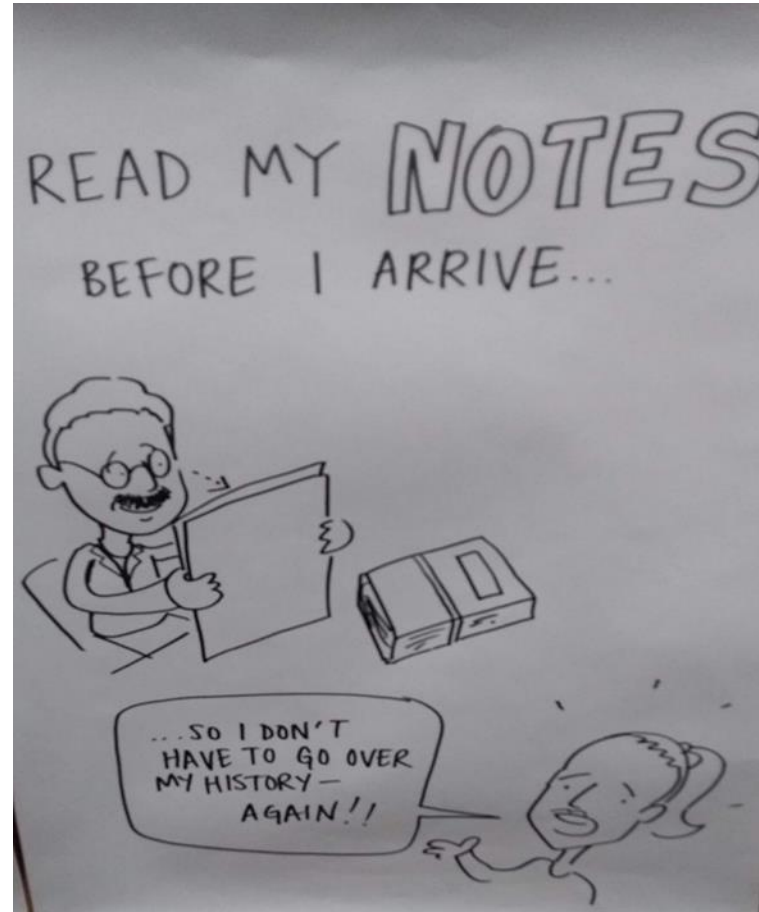 READ MY NOTES
BEFORE I ARRIVE...
...SO I DON'T
HAVE TO GO OVER
MY HISTORY —
AGAIN!!